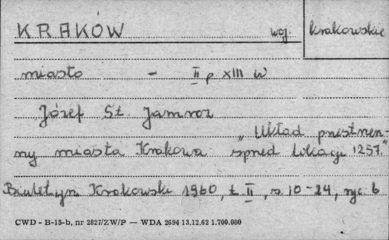 KRAKÓW woj. krakowskie
miasto - II p XIII w
Józef St. Jamroz
„Układ przestrzen-
ny miasta Krakowa sprzed lokacji 1257."
Biuletyn Krakowski 1960, t. II, s. 10-24, ryc. 6
CWD - B-15-b, nr 2827/ZW/P — WDA 2694 13.12.62 1.700.000